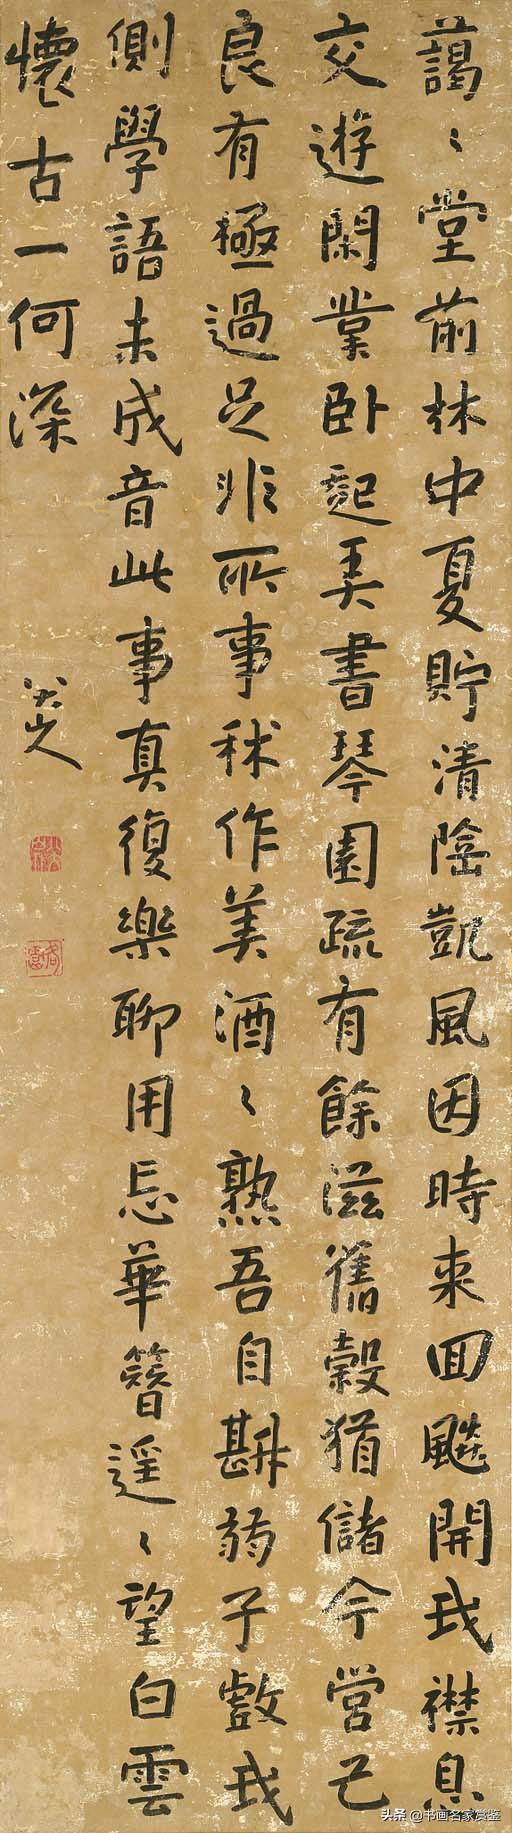 藹〻堂前林中夏貯清陰凱風因時來回飈開我襟息
交遊閑業卧起弄書琴園疏有餘滋舊穀猶儲今營己
良有極過足非所事秫作美酒〻熟吾自斟弱子戲我
側學語未成音此事真復樂聊用忘華簪遥〻望白雲
懷古一何深
八大山人
头条 @书画名家赏鉴